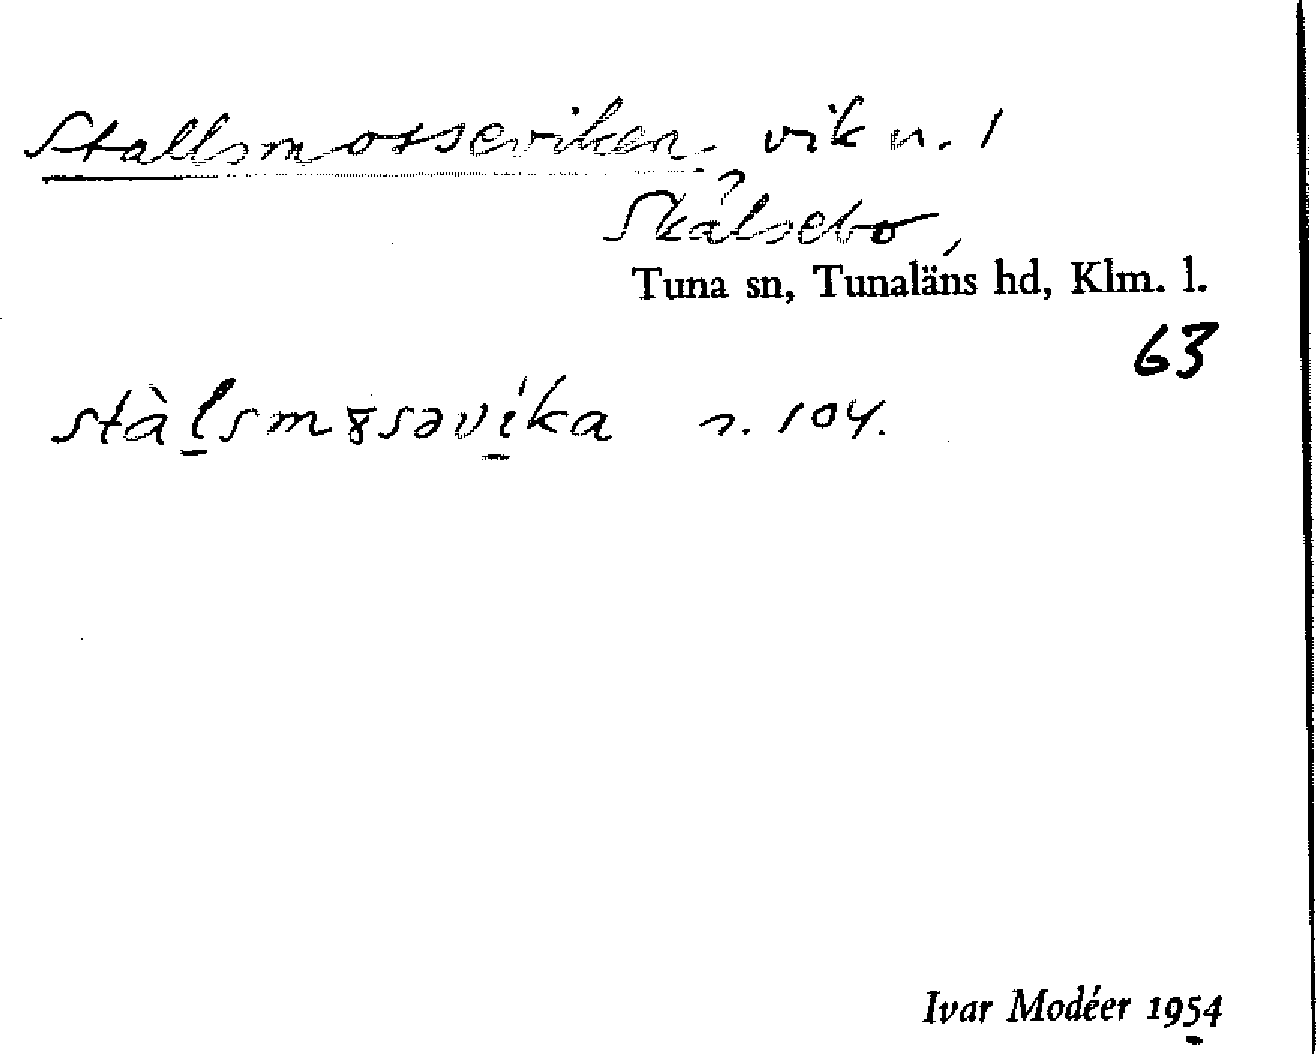 Stallsmosseviken, vik n. 1
Skälsebo,
Tuna sn, Tunaläns hd, Klm. l.
63
n. 104.
Ivar Modéer 1954